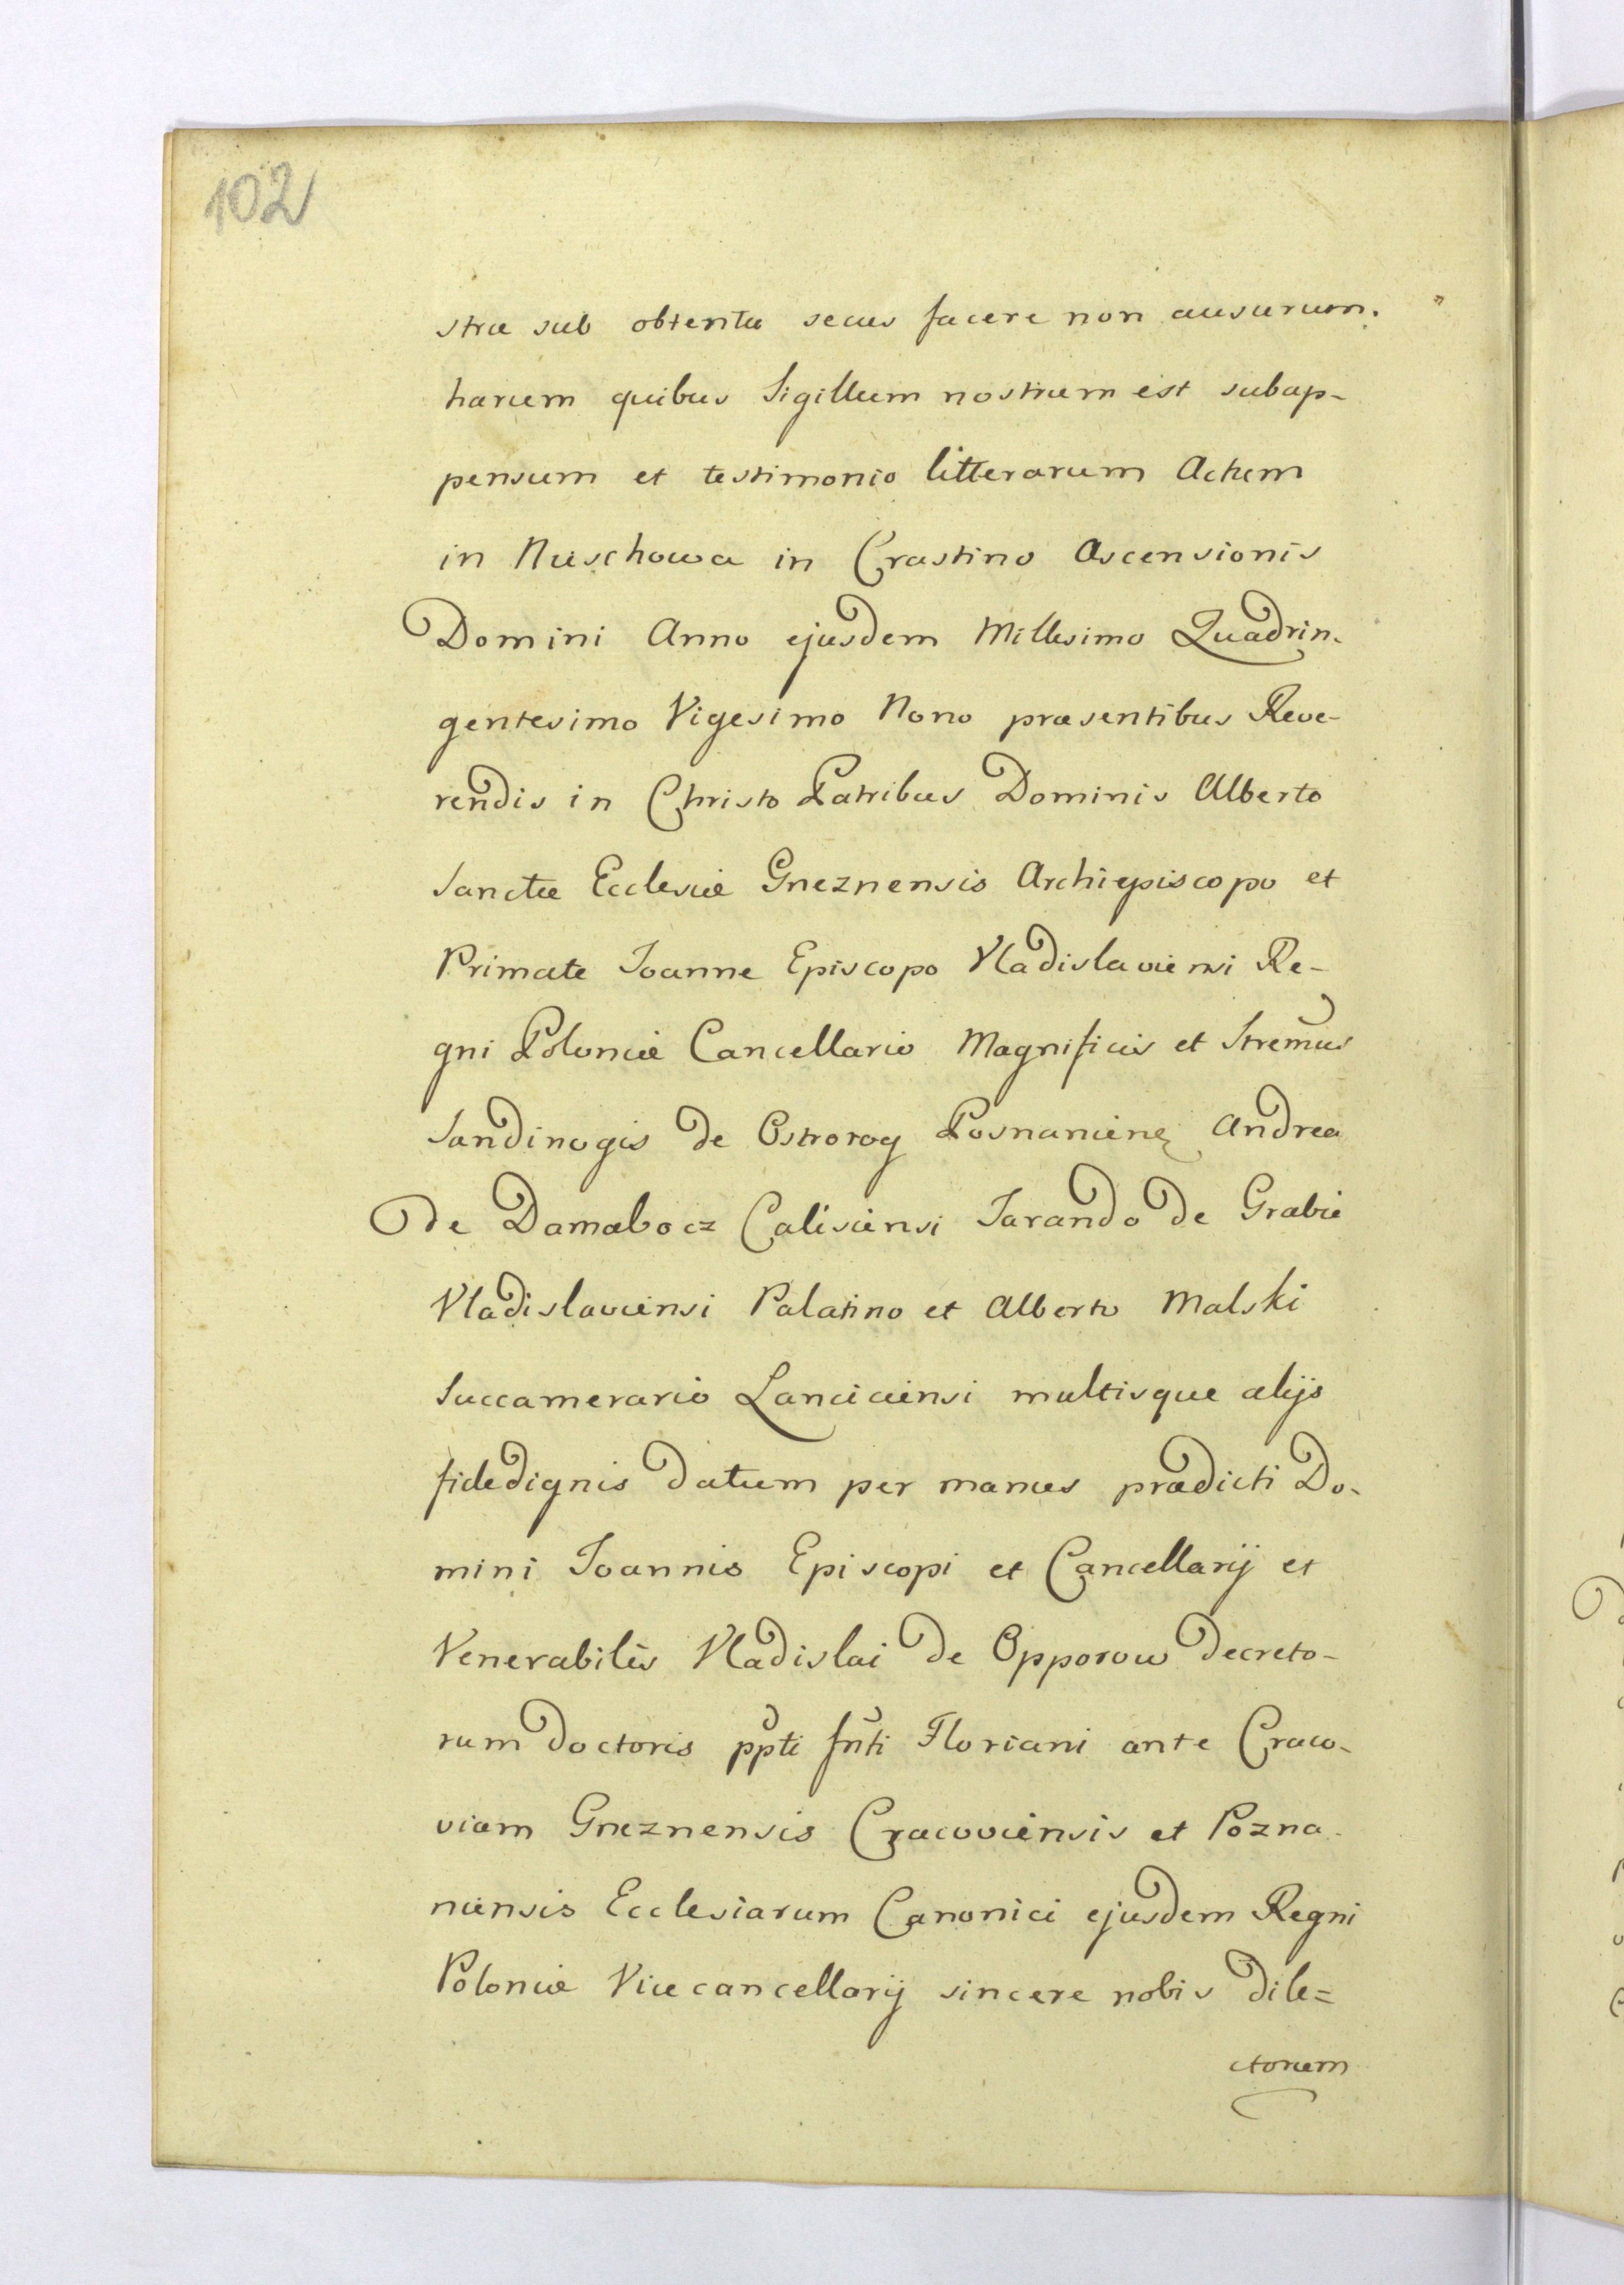 102
stræ sub obtentu secus facere non ausurum.
harum quibus Sigillum nostrum est subap-
pensum et testimonio litterarum Actum
in Nieschowa in Crastino Ascensionis
Domini Anno ejusdem Millesimo Quadrin-
gentesimo Vigesimo Nono præsentibus Reve-
rendis in Christo Patribus Dominis Alberto
Sanctæ Ecclesiæ Gneznensis Archiepiscopo et
Primate Joanne Episcopo Vladislaviensi Re-
gni Poloniæ Cancellario Magnificis et
Sandivogis de Ostrorog Andrea
de Damaborz Calisiensi Jarando de Grabie
Vladislaviensi Palatino et Alberto Malski
Succamerario Lanciciensi multisque alijs
fidedignis datum per manus prædicti Do-
mini Joannis Episcopi et Cancellarij et
Venerabilis Vladislai de Opporow decreto-
rum doctoris ppti Snti Floriani ante Craco-
viam Gneznensis Cracoviensis et Pozna-
niensis Ecclesiarum Canonici ejusdem Regni
Poloniæ Vicecancellarij sincere nobis dile=
ctorum